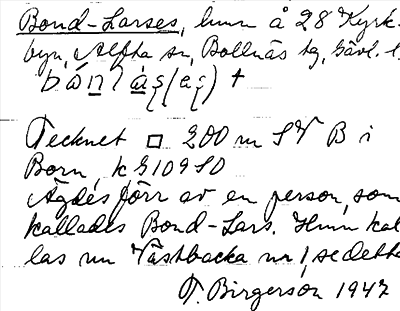 Bond-Larses, hmn å 28 Kyrk-
byn, Alfta sn, Bollnäs tg, Gävl. l
Tecknet □ 200 m SV B i
Born, k 9109 SO
Ägdes förr av en person, som
kallades Bond-Lars. Hmn kal
las nu Västbacka nr 1, se detta
T. Birgerson 1947